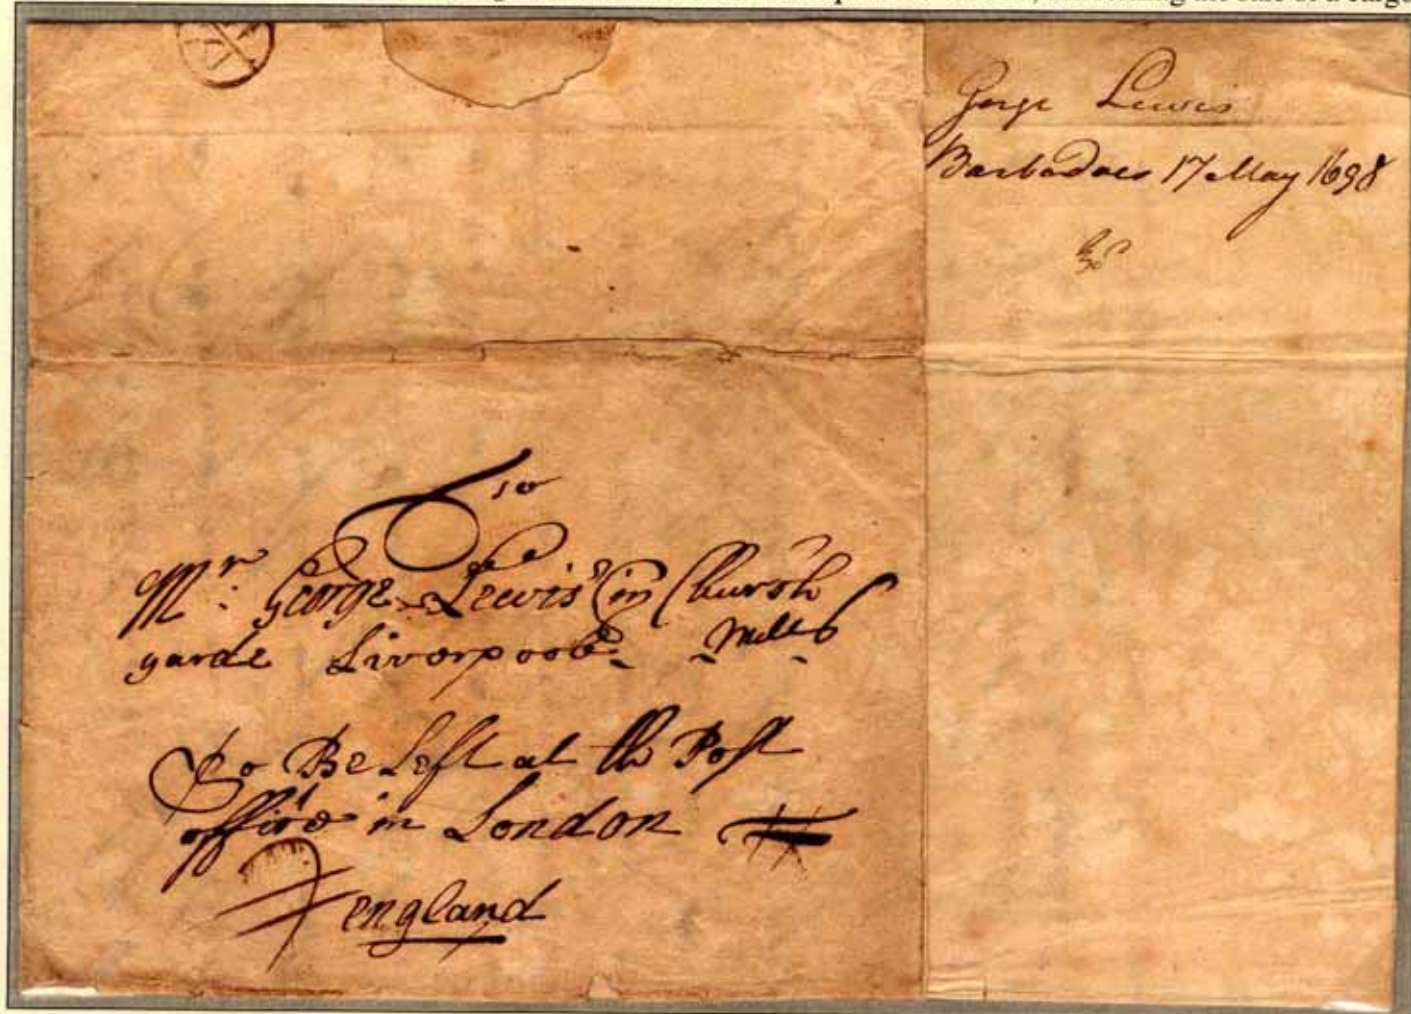 George Lewis
Barbadoes 17 May 1698
To
Mr: George Lewis in Church
yarde Liverpoole
To Be Left at the Post
office in London
England